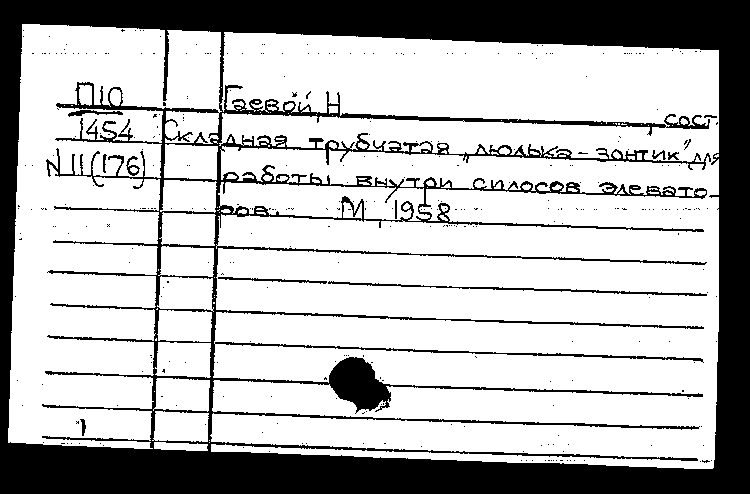 П10 Гаевой, Н , сост.
1454 Складная трубчатая „люлька-зонтик", для
N 11(176) работы внутри силосов элевато-
ров. М, 1958
1